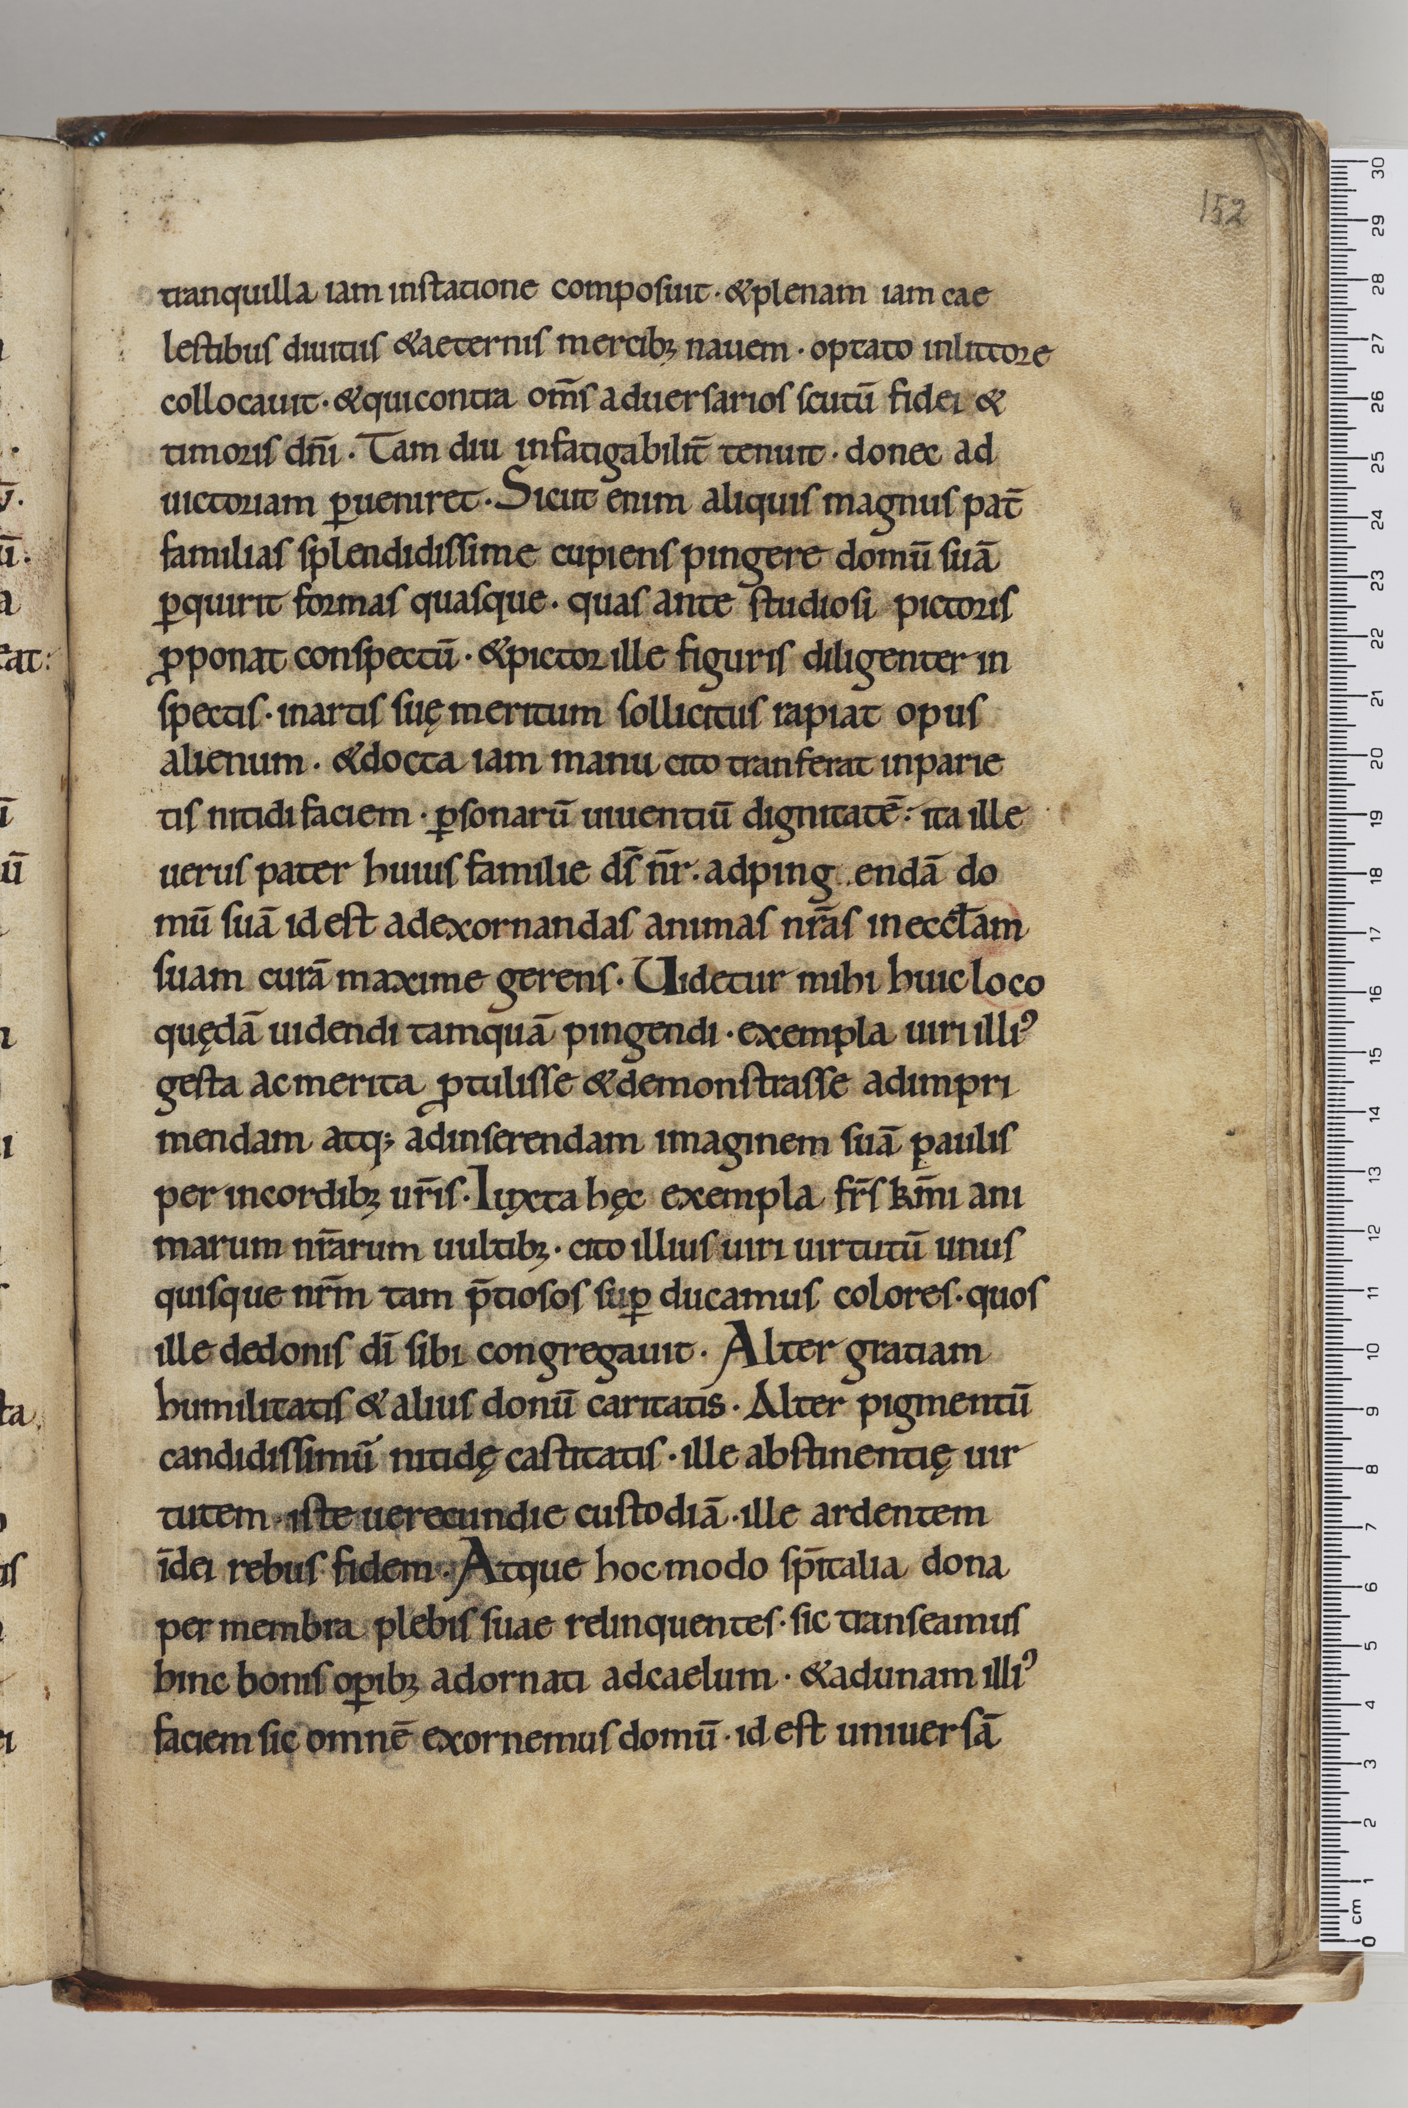 152
tranquilla iam instatione composuit · &plenam iam cae
lestibus diuitiis &aeternis mercibꝫ nauem · optato inlittore
collocauit · &quicontra om̄s aduersarios scutū fidei &
timoris dn̄i · Tam diu infatigabilit̄ tenuit · donec ad
uictoriam ꝑueniret · Sicut enim aliquis magnus pat̄
familias splendidissime cupiens pingere domū suā
ꝑquirit formas quasque · quas ante studiosi pictoris
ꝓponat conspectū · &pictor ille figuris diligenter in
spectis · inartis suę meritum sollicitus rapiat opus
alienum · &docta iam manu cito tranferat inparie
tis nitidi faciem · ꝑsonarū uiuentiū dignitatē : ita ille
uerus pater huius familie dr̄ nr̄ · adping endā do
mū suā id est adexornandas animas nr̄as in eccƚam
suam curā maxime gerens · Uidetur mihi huic loco
quędā uidendi tamquā pingendi · exempla uiri illiꝰ
gesta acmerita ꝓtulisse &demonstrasse adimpri
mendam atqꝫ adinserendam imaginem suā paulis
per incordibꝫ ur̄is · Iuxta hęc exempla fr̄s km̄i ani
marum nr̄arum uultibꝫ · cito illius uiri uirtutū unus
quisque nr̄m tam p̄tiosos suꝑ ducamus colores · quos
ille dedonis dī sibi congregauit · Alter gratiam
humilitatis & alius donū caritatis · Alter pigmentū
candidissimū nitidę castitatis · ille abstinentię uir
tutem · iste uerecundie custodiā · ille ardentem
īdei rebus fidem · Atque hoc modo sp̄italia dona
per membra plebis suae relinquentes · sic transeamus
hinc bonis oꝑibꝫ adornati adcaelum · &adunam illiꝰ
faciem sic omnē exornemus domū · id est uniuersā